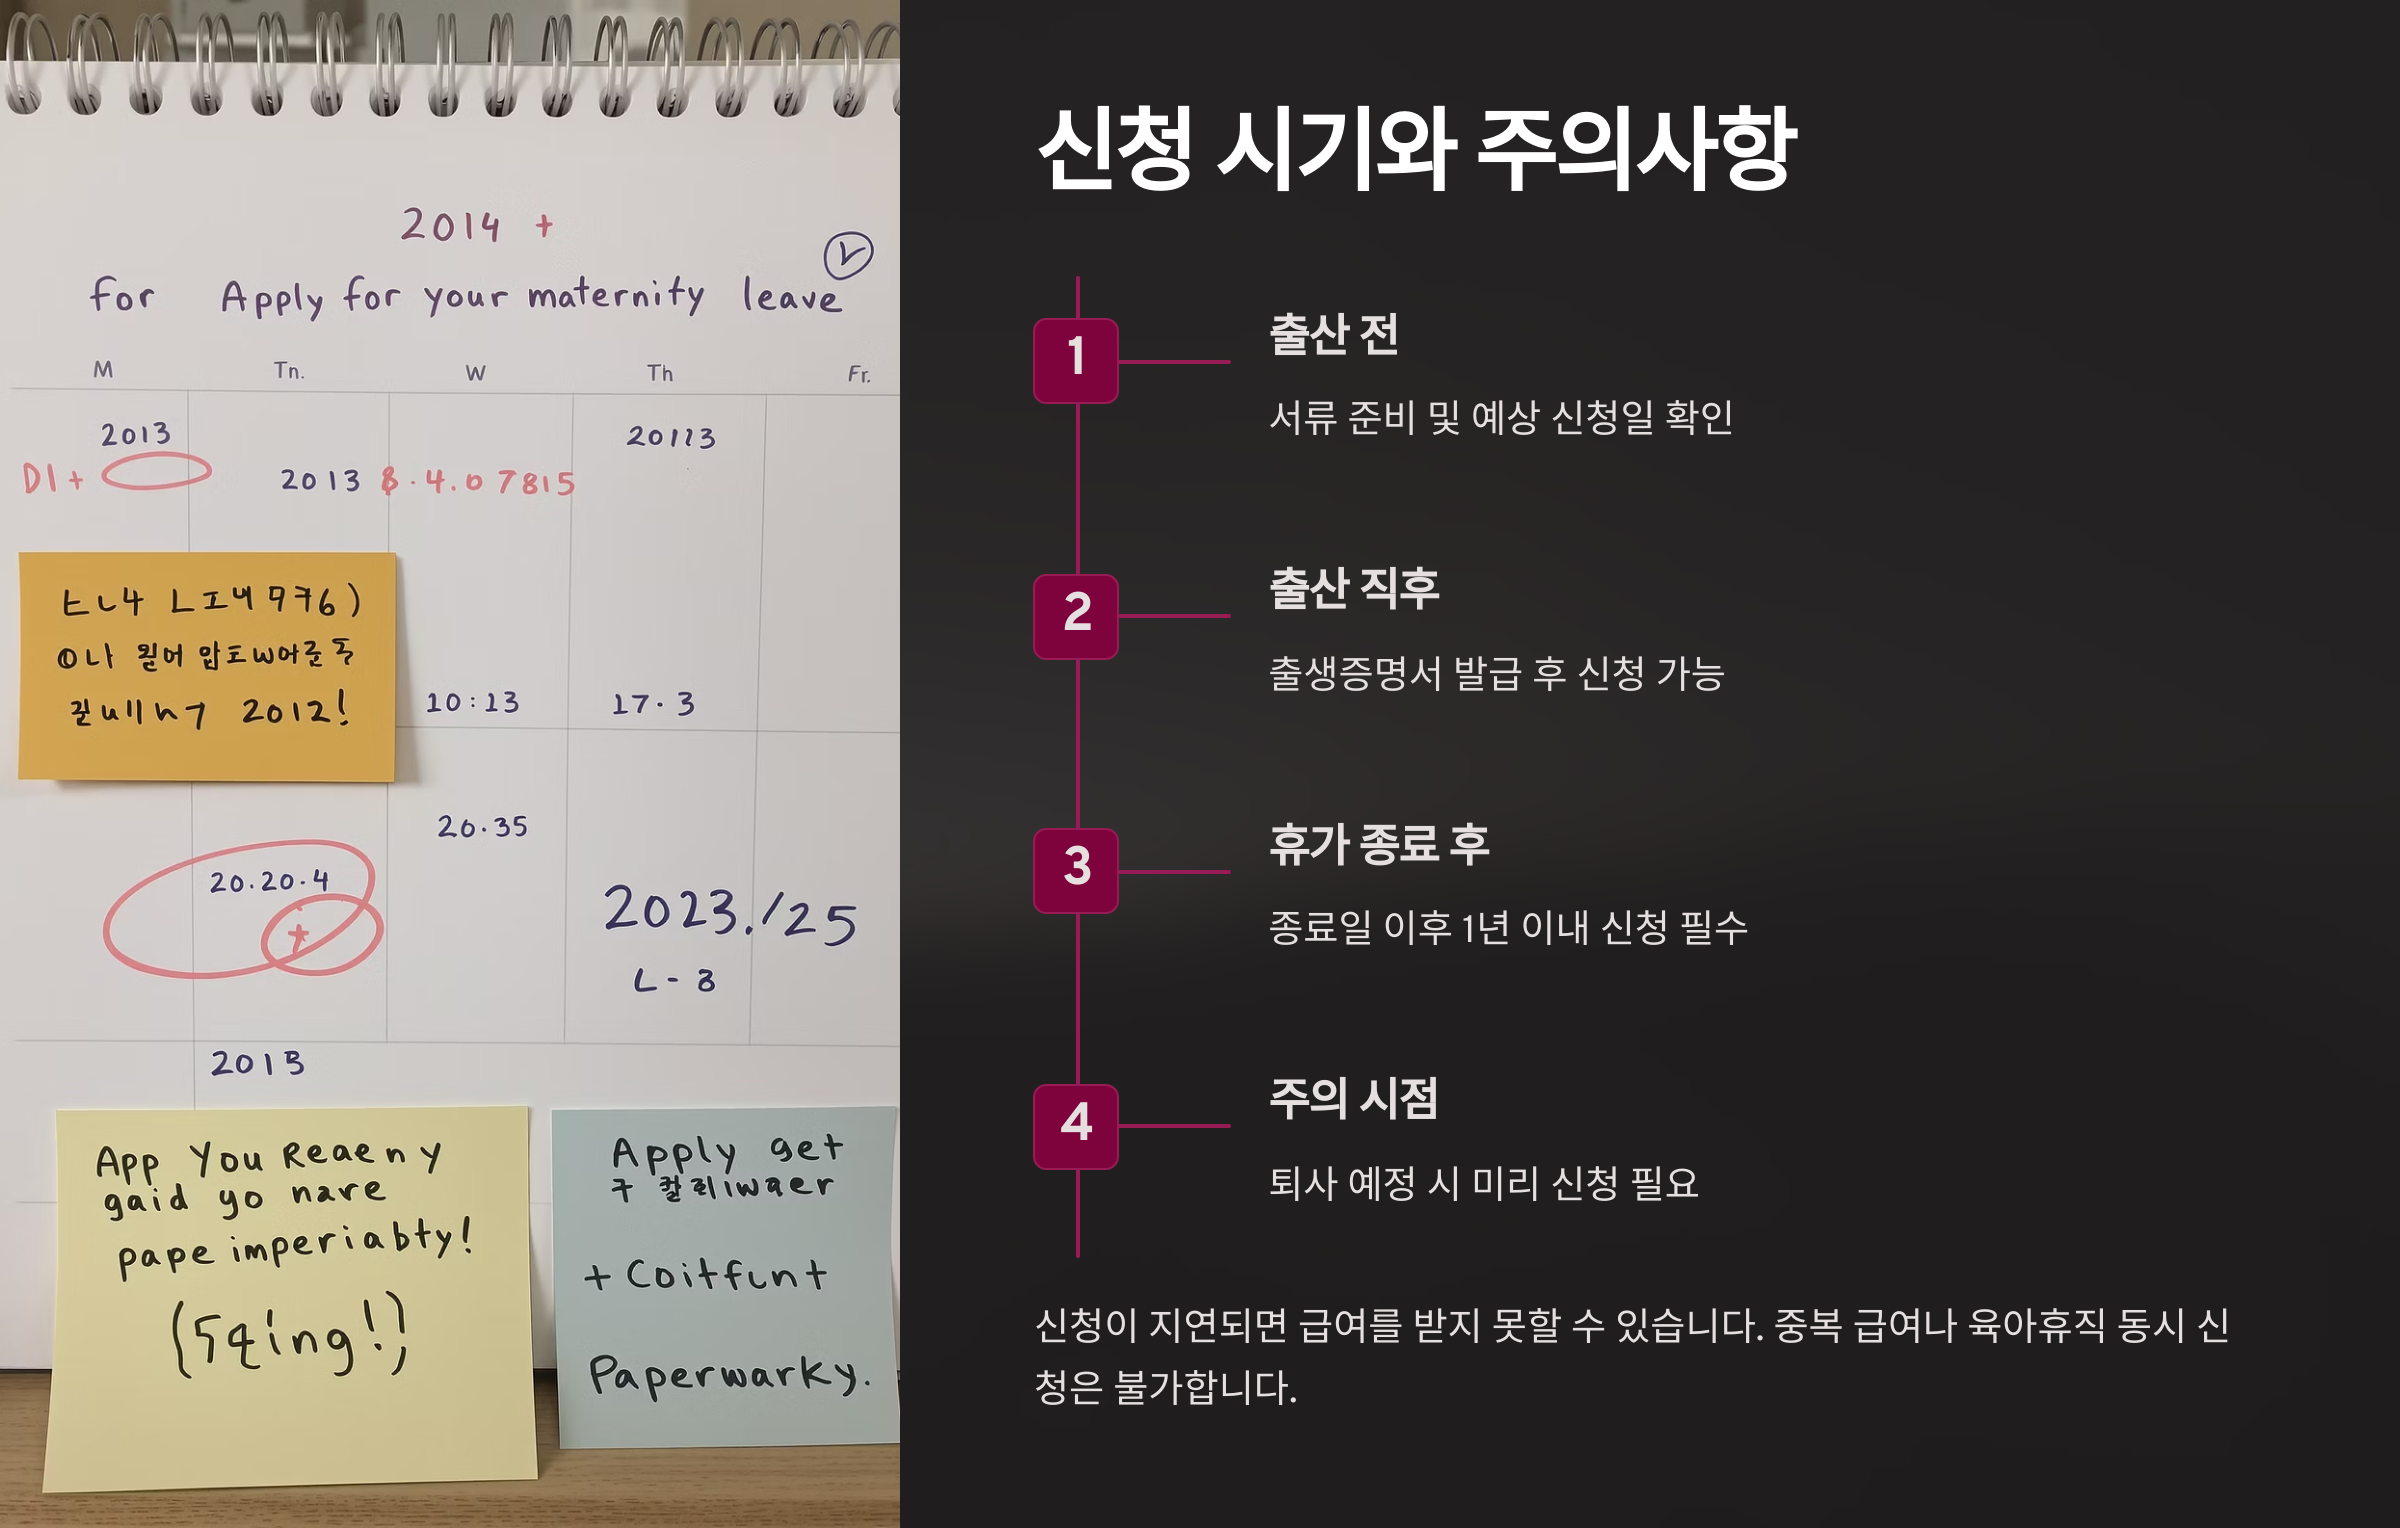 2014 +
for Apply for your maternity leave
M Tn. W Th Fr.
2013
20113
D1 +
2013 8.4.07815
976)
2012!
10:13
17.3
20.35
20.20.4
+
2023./25
L-8
2013
App You Reaeny
gaid yo nare
pape imperiabty!
Apply get
+ Coitfunt
Paperwarky.
신청 시기와 주의사항
1
출산 전
서류 준비 및 예상 신청일 확인
2
출산 직후
출생증명서 발급 후 신청 가능
3
휴가 종료 후
종료일 이후 1년 이내 신청 필수
4
주의 시점
퇴사 예정 시 미리 신청 필요
신청이 지연되면 급여를 받지 못할 수 있습니다. 중복 급여나 육아휴직 동시 신
청은 불가합니다.